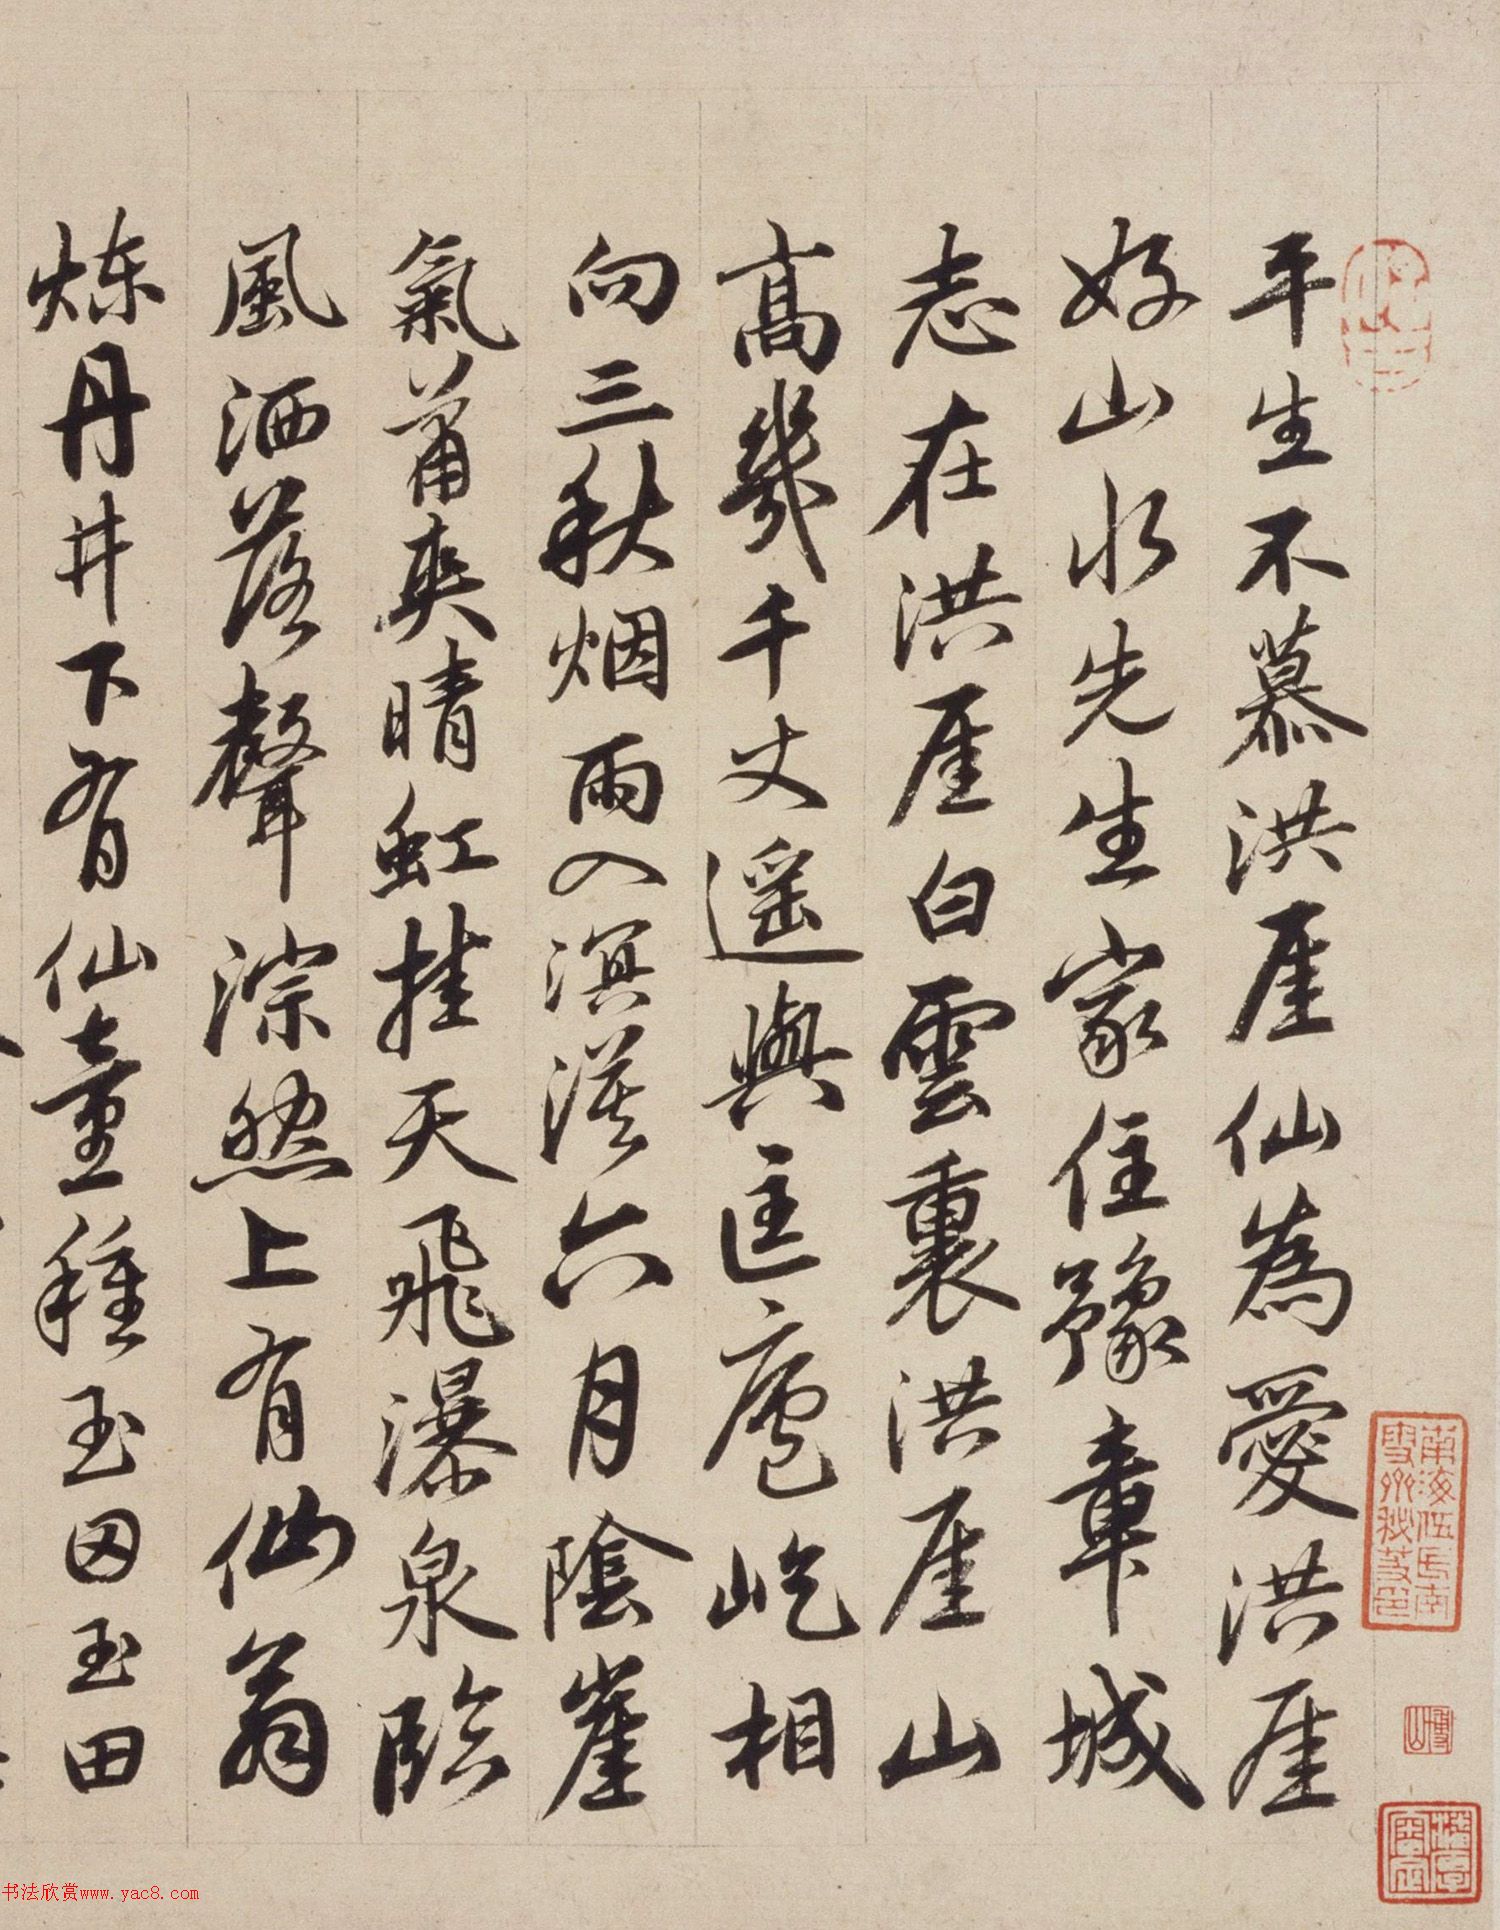 平生不慕洪厓仙為愛洪厓
好山水先生家住豫章城
志在洪厓白雲裏洪厓山
高幾千丈遥與匡廬屹相
向三秋烟雨入溟漠六月陰崖
氣萧爽晴虹挂天飛瀑泉臨
風洒落聲淙然上有仙翁
炼丹井下有仙童種玉田玉田
書法欣赏www.yac8.com